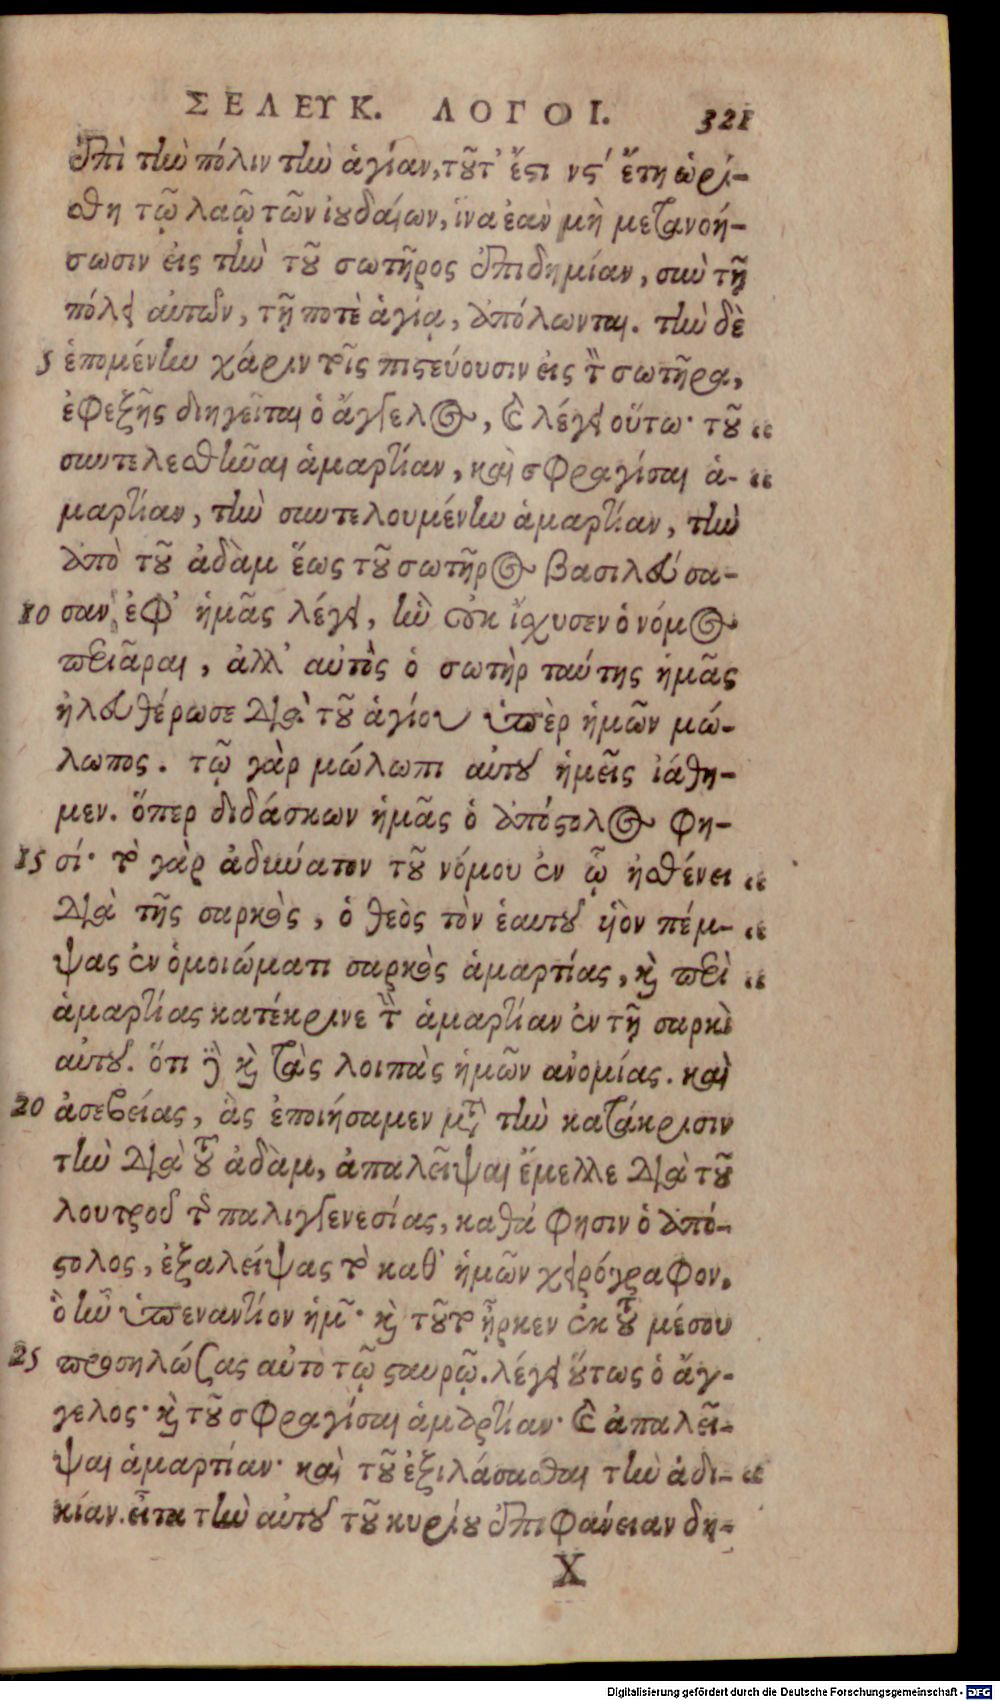 ΣΕΛΕΥΚ. ΛΟΓΟΙ. 321
ἐπὶ τὴν πόλιν τὴν ἁγίαν, τοῦτ' ἔστι νϛ´ ἔτη ὡρί-
σθη τῷ λαῷ τῶν ἰουδαίων, ἵνα ἐὰν μὴ μετανοή-
σωσιν εἰς τὴν τοῦ σωτῆρος ἐπιδημίαν, σὺν τῇ
πόλει αὐτῶν, τῇ ποτὲ ἁγίᾳ, ἀπόλωνται. τὴν δὲ
5 ἑπομένην χάριν τοῖς πιστεύουσιν εἰς τὸν σωτῆρα,
ἐφεξῆς διηγεῖται ὁ ἄγγελος, καὶ λέγει οὕτω· τοῦ "
συντελεσθῆναι ἁμαρτίαν, καὶ σφραγίσαι ἁ- "
μαρτίαν, τὴν συντελουμένην ἁμαρτίαν, τὴν
ἀπὸ τοῦ ἀδὰμ ἕως τοῦ σωτῆρος βασιλεύσα-
10 σαν ἐφ' ἡμᾶς λέγει, ἣν οὐκ ἴσχυσεν ὁ νόμος
περιᾶραι, ἀλλ' αὐτὸς ὁ σωτὴρ ταύτης ἡμᾶς
ἠλευθέρωσε διὰ τοῦ ἁγίου ὑπὲρ ἡμῶν μώ-
λωπος. τῷ γὰρ μώλωπι αὐτοῦ ἡμεῖς ἰάθη-
μεν. ὅπερ διδάσκων ἡμᾶς ὁ ἀπόστολος φη-
15 σί· τὸ γὰρ ἀδύνατον τοῦ νόμου ἐν ᾧ ἠσθένει "
διὰ τῆς σαρκὸς, ὁ θεὸς τὸν ἑαυτοῦ υἱὸν πέμ- "
ψας ἐν ὁμοιώματι σαρκὸς ἁμαρτίας, καὶ περὶ "
ἁμαρτίας κατέκρινε τὴν ἁμαρτίαν ἐν τῇ σαρκὶ
αὐτοῦ. ὅτι δὲ καὶ τὰς λοιπὰς ἡμῶν ἀνομίας. καὶ
20 ἀσεβείας, ἃς ἐποιήσαμεν μετὰ τὴν κατάκρισιν
τὴν διὰ τοῦ ἀδὰμ, ἀπαλεῖψαι ἔμελλε διὰ τοῦ
λουτροῦ τῆς παλιγγενεσίας, καθά φησιν ὁ ἀπό-
στολος, ἐξαλείψας τὸ καθ' ἡμῶν χειρόγραφον,
ὃ ἦν ὑπεναντίον ἡμῖν· καὶ τοῦτο ἦρκεν ἐκ τοῦ μέσου
25 προσηλώσας αὐτὸ τῷ σταυρῷ. λέγει οὕτως ὁ ἄγ-
γελος· καὶ τοῦ σφραγίσαι ἁμαρτίαν· καὶ ἀπαλεῖ-
ψαι ἁμαρτίαν· καὶ τοῦ ἐξιλάσασθαι τὴν ἀδι- "
κίαν. εἶτα τὴν αὐτοῦ τοῦ κυρίου ἐπιφάνειαν δη-
X
Digitalisierung gefördert durch die Deutsche Forschungsgemeinschaft - DFG